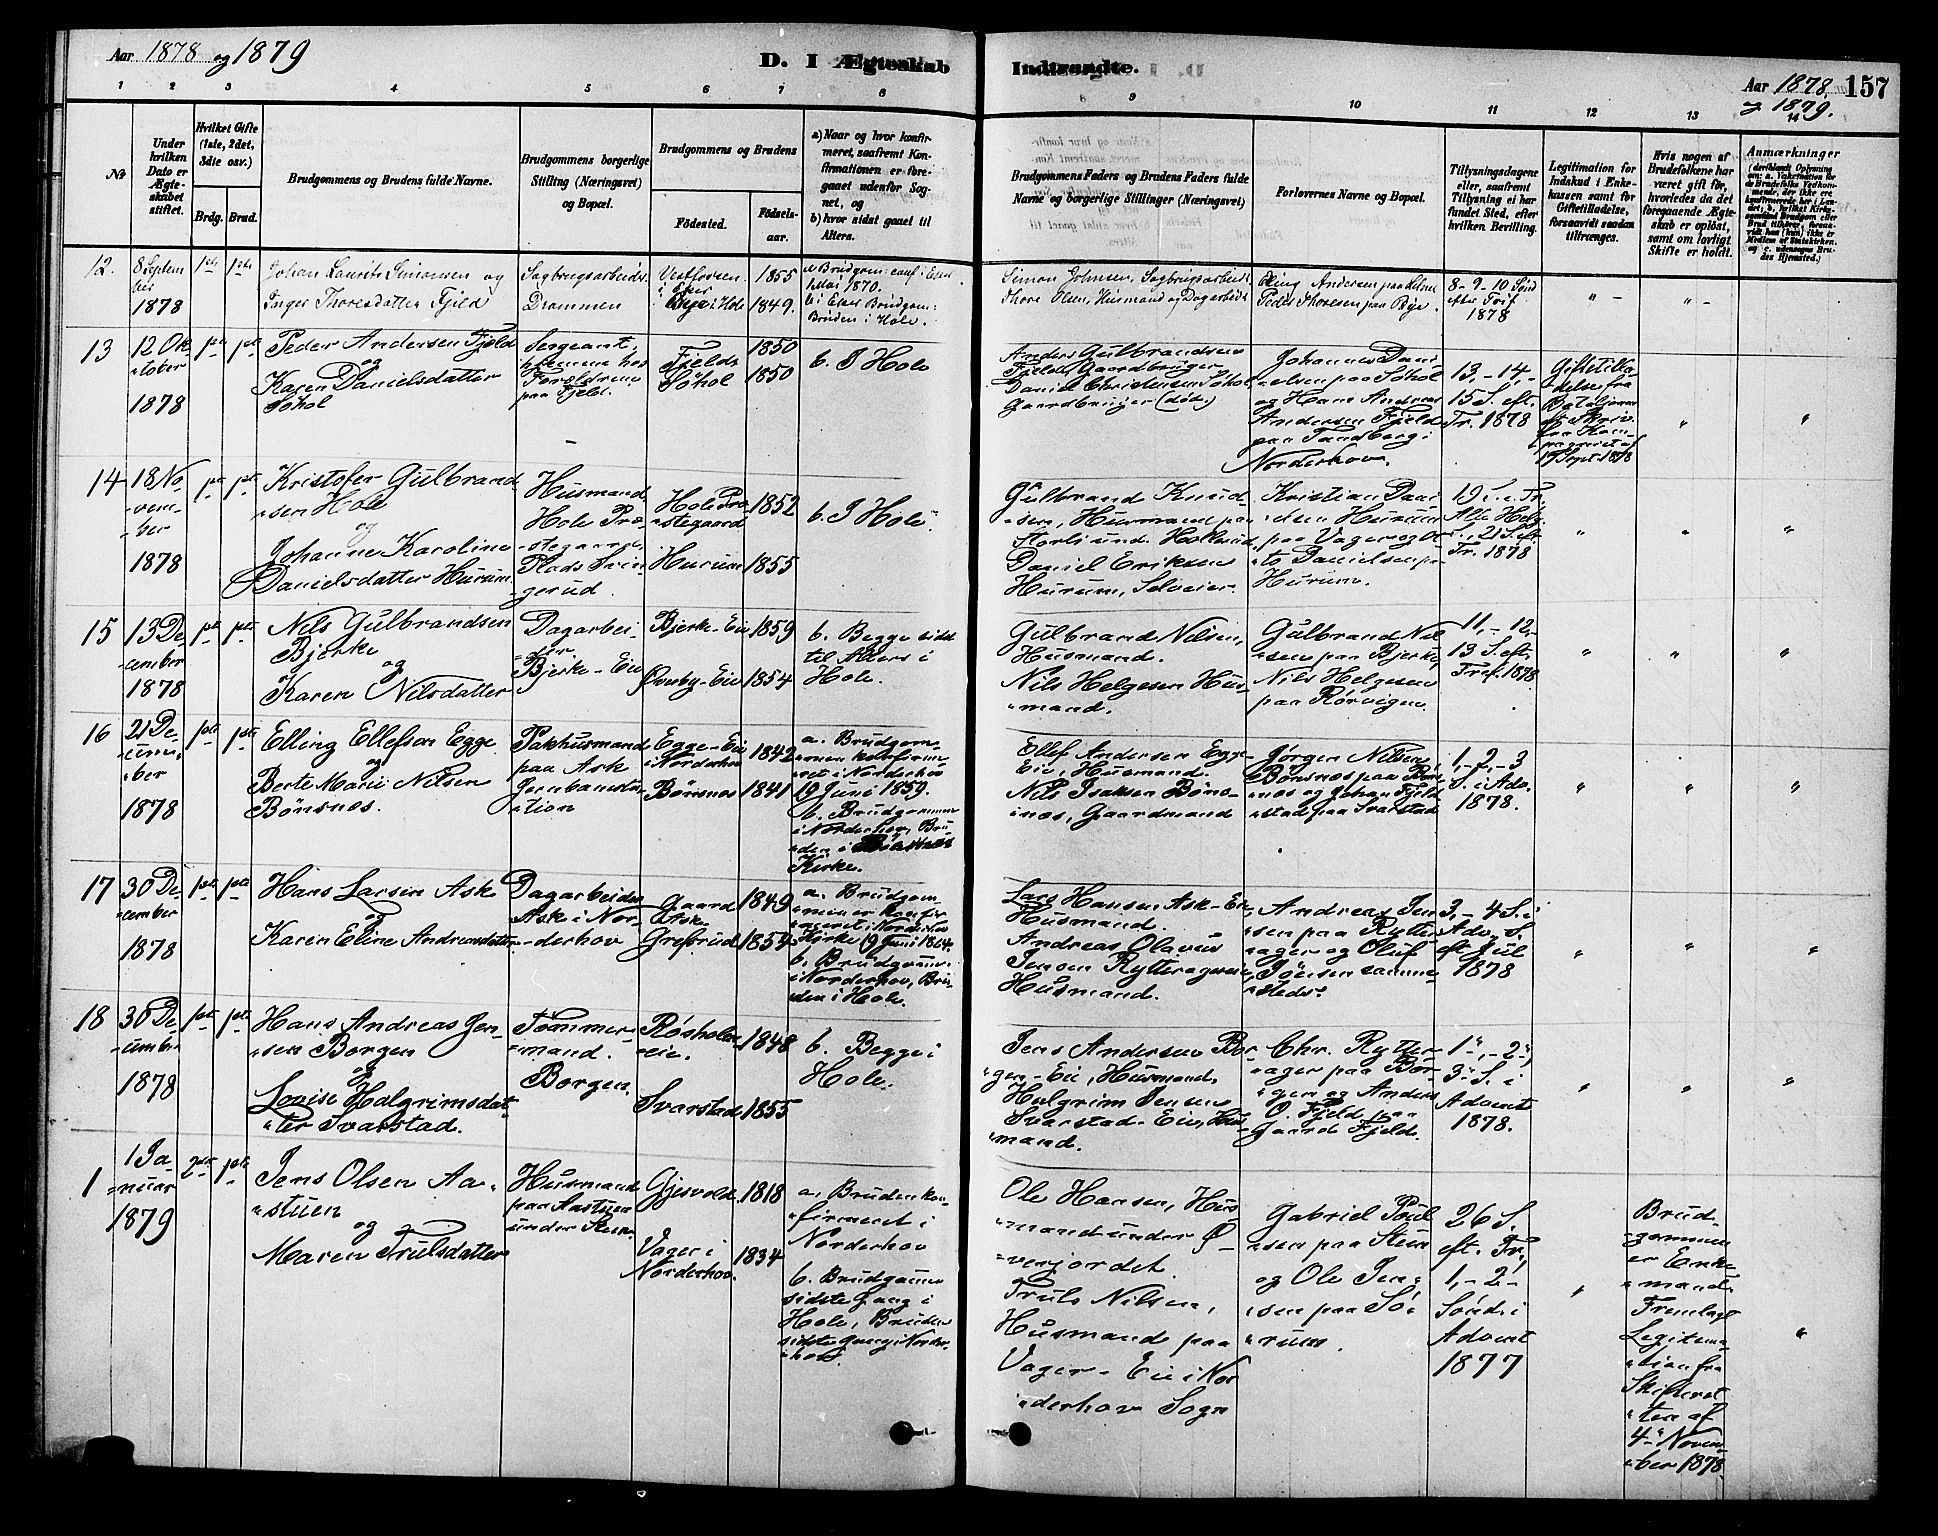 Aar 1878 og 1879
D. I Ægteskab
1 2 3 4 5 6 7 8
No
Under hvilken Dato er Ægteskabet stiftet.
Hvilket Gifte (1ste, 2det, 3die osv.)
Brdg. Brud.
Brudgommens og Brudens fulde Navne.
Brudgommens borgerlige Stilling (Næringsvei) og Bopæl.
Brudgommens og Brudens
Fødested.
Fødselsaar.
a) Naar og hvor konfirmeret, saafremt Konfirmationen er foregaaet udenfor Sognet, og
b) hvor sidst gaaet til Alters.
12.
8 September
1878
1ste 1ste
Johan Laurits Simonsen og
Inger Thoresdatter Fjeld
Sagbrugsarbeider
Drammen
Vestfossen
i Eker
i Hole
1855
1849.
a Brudgom: conf. i Eker
1 Mai 1870.
b. i Eker Brudgom:
Bruden i Hole.
13
12 Oktober
1878
1ste 1ste
Peder Andersen Fjeld
og
Karen Danielsdatter
Søhol
Sergeant,
hjemme hos
Forældrene
paa Fjeld.
Fjeld
Søhol
1850
1850
b. I Hole
14
18 November
1878
1ste 1ste
Kristofer Gulbrandsen
Hole
og
Johanne Karoline
Danielsdatter Hurum
Husmand,
Hole Præstegaard,
Plads
Hole Præstegaard
Hurum
1852
1855
b. I Hole.
15
13 December
1878
1ste 1ste
Nils Gulbrandsen
Bjerke
og
Karen Nilsdatter
Dagarbeider,
Bjerke-Eie
Bjerke-Eie
Øverby-Eie
1859
1854
b. Begge sidst
til Alters i
Hole.
16
21 December
1878
1ste 1ste
Elling Ellefsen Egge
og
Berte Marie Nilsen
Bønsnes.
Pakhusmand
paa Ask
Jernbanestation
Egge-Eie
i Norderhov
Bønsnes
1842
1841
a. Brudgommen konfirmeret i Norderhov
19 Juni 1859.
b. Brudgommen
i Norderhov, Bruden i Bønsnes
Kirke.
17
30 December
1878
1ste 1ste
Hans Larsen Ask
og
Karen Eline Andreasdatter
Dagarbeider
Ask i Norderhov
Gaard
Ask.
Grefsrud
1849
1854
a. Brudgommen er konfirmeret i Norderhov
Kirke 19 Juni 1864.
b. Brudgommen
i Norderhov, Bruden i Hole.
18
30 December
1878
1ste 1ste
Hans Andreas Jensen Borgen
og
Lovise Halgrimsdatter Svarstad.
Tømmermand.
Borgen
Røsholmeie.
Svarstad
1848
1855
b. Begge i
Hole.
1
1 Januar
1879
2det 1ste
Jens Olsen Aastuen
og
Maren Trulsdatter
Husmand
paa Aastuen
under Sten.
Gjesvold
Vager i
Norderhov.
1818
1834
a. Bruden konfirmeret i
Norderhov
b. Brudgommen
sidste Gang i
Hole, Bruden
sidste gang i Norderhov.
Indtraadte.
Aar 1878 157
og 1879.
9 10 11 12 13 14
Brudgommens Faders og Brudens Faders fulde Navne og borgerlige Stillinger (Næringsvei)
Forlovernes Navne og Bopæl.
Tillysningsdagene eller, saafremt Tillysning ei har fundet Sted, efter hvilken Bevilling.
Legitimation for Indskud i Enkekassen samt for Giftetilladelse, forsaavidt saadan tiltrænges.
Hvis nogen af Brudefolkene har været gift før, hvorledes da det foregaaende Ægteskab er opløst, samt om lovligt Skifte er holdt.
Anmærkninger
Simon Johnsen, Sagbrugsarbeider
Thore Olsen, Husmand og Dagarbeider
Elling Andersen paa
Peder Thoresen paa Bye.
8-9-10 Sønd
efter Trif.
1878
" -
" -
Anders Gulbrandsen
Fjeld, Gaardbruger
Daniel Christensen Søhol,
Gaardbruger (død.)
Johannes Danielsen paa Søhol
og Hans Andreas
Andersen Fjeld
paa Tandberg i
Norderhov.
13,-14,-
15 S. eft.
Tr. 1878
Giftetilladelse fra
Bataljonen
19 Sept. 1878
"
"
Gulbrand Knudsen, Husmand paa
under Hollerud,
Daniel Eriksen
Hurum, Selveier.
Kristian Danielsen Hurum
paa Vager og Otto Danielsen paa
Hurum.
19 S. e. Tr.
Alle Helg.
S. 21 S. eft.
Tr. 1878
"
"
"
Gulbrand Nilsen,
Husmand.
Nils Helgesen Husmand.
Gulbrand Nilsen paa Bjerke,
Nils Helgesen
paa Rørvigen.
11,-12,-
13 S. eft.
Tref. 1878.
"
"
"
Ellef Andersen Egge
Eie, Husmand.
Nils Isaksen Bønsnes, Gaardmand
Jørgen Nilsen
Bønsnes paa Bønsnes og Johan Fjeldstad paa Svarstad
1,-2,-3
S. i Adv.
1878.
"
"
"
Lars Hansen, Ask-Eie,
Husmand.
Andreas Olavus
Jensen Rytteragereie,
Husmand.
Andreas Jensen paa Rytterager og Oluf
Jensen sammesteds.
3,-4 S. i
Adv., S.
eft Jul
1878
"
"
"
Jens Andersen Borgen-Eie, Husmand.
Halgrim Jensen
Svarstad-Eie, Husmand.
Chr. Rytterager paa Borgen og Anders
O. Fjeld paa
Gaard Fjeld.
1",-2",
3" S. i
Advent
1878.
"
"
"
Ole Hansen, Husmand under Øverjordet.
Truls Nilsen,
Husmand paa
Vager-Eie i Norderhov Sogn
Gabriel Poulsen paa Sten
og Ole Jensen paa Sørum.
26 S.
eft. Tr,
1,-2-
Sønd. i
Advent
1877
"
Brudgommen
er Enkemand.
Fremlagt
Legitimation fra
Skifteretten af
4de November 1878
"